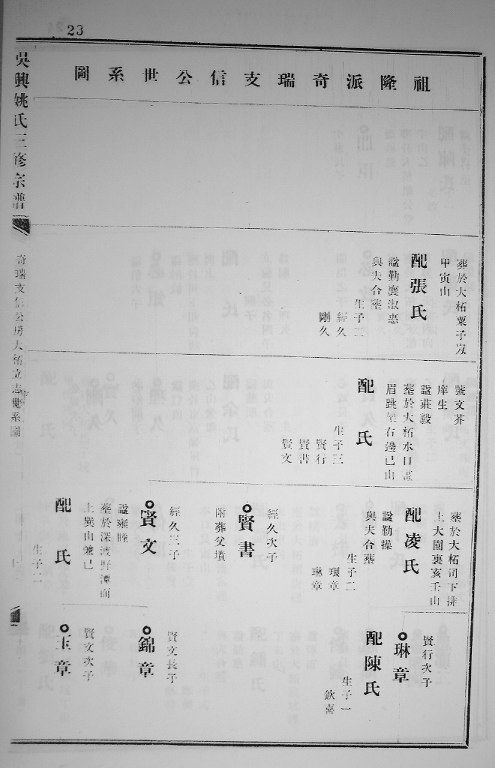 23
祖隆派奇瑞支信公世系圖
吳興姚氏三修宗譜
奇瑞支信公房大柘立志
葬於大柘粟子岌
甲寅山
配張氏
諡勤襄淑惠
與夫合葬
生子二
經久
剛久
號文斧
庠生
諡莊毅
葬於大柘水口
眉跳 右邊巳山
配氏
生子三
賢行
賢書
賢文
葬於大柘司下排
上大圍裏亥壬山
配凌氏
諡勤操
與夫合葬
生子二
環章
琳章
賢書
經久次子
附葬父墳
賢文
經久三子
諡雍睦
葬於深波野潭面
上巽山兼巳
配氏
生子二
琳章
賢行次子
配陳氏
生子一
欽喬
錦章
賢文長子
玉章
賢文次子